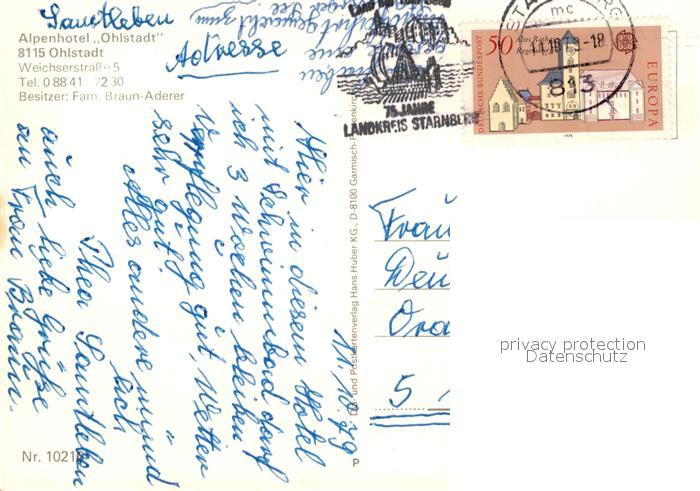 Santleben
Alpenhotel „Ohlstadt"
8115 Ohlstadt
Weichserstraße 5
Tel. 0 88 41 72 30
Besitzer: Fam. Braun-Aderer
Adresse
11.10.79
Hier in diesem Hotel
mit Schwimmbad darf
ich 3 Wochen bleiben
Verpflegung gut, Wetter
sehr gut!
Alles andere münd
lich.
Thea Santleben
auch liebe Grüße
an Frau Braun.
Nr. 1021
Huber KG., D-8100 Garmisch-
und Postkartenverlag Hans
P
75 JAHRE
LANDKREIS STARNBERG
STARNBERG
mc
-18
813
50
Altes Rathaus
Regensburg
DEUTSCHE BUNDESPOST
EUROPA
1978
Frau
Deu
Ora
5
privacy protection
Datenschutz